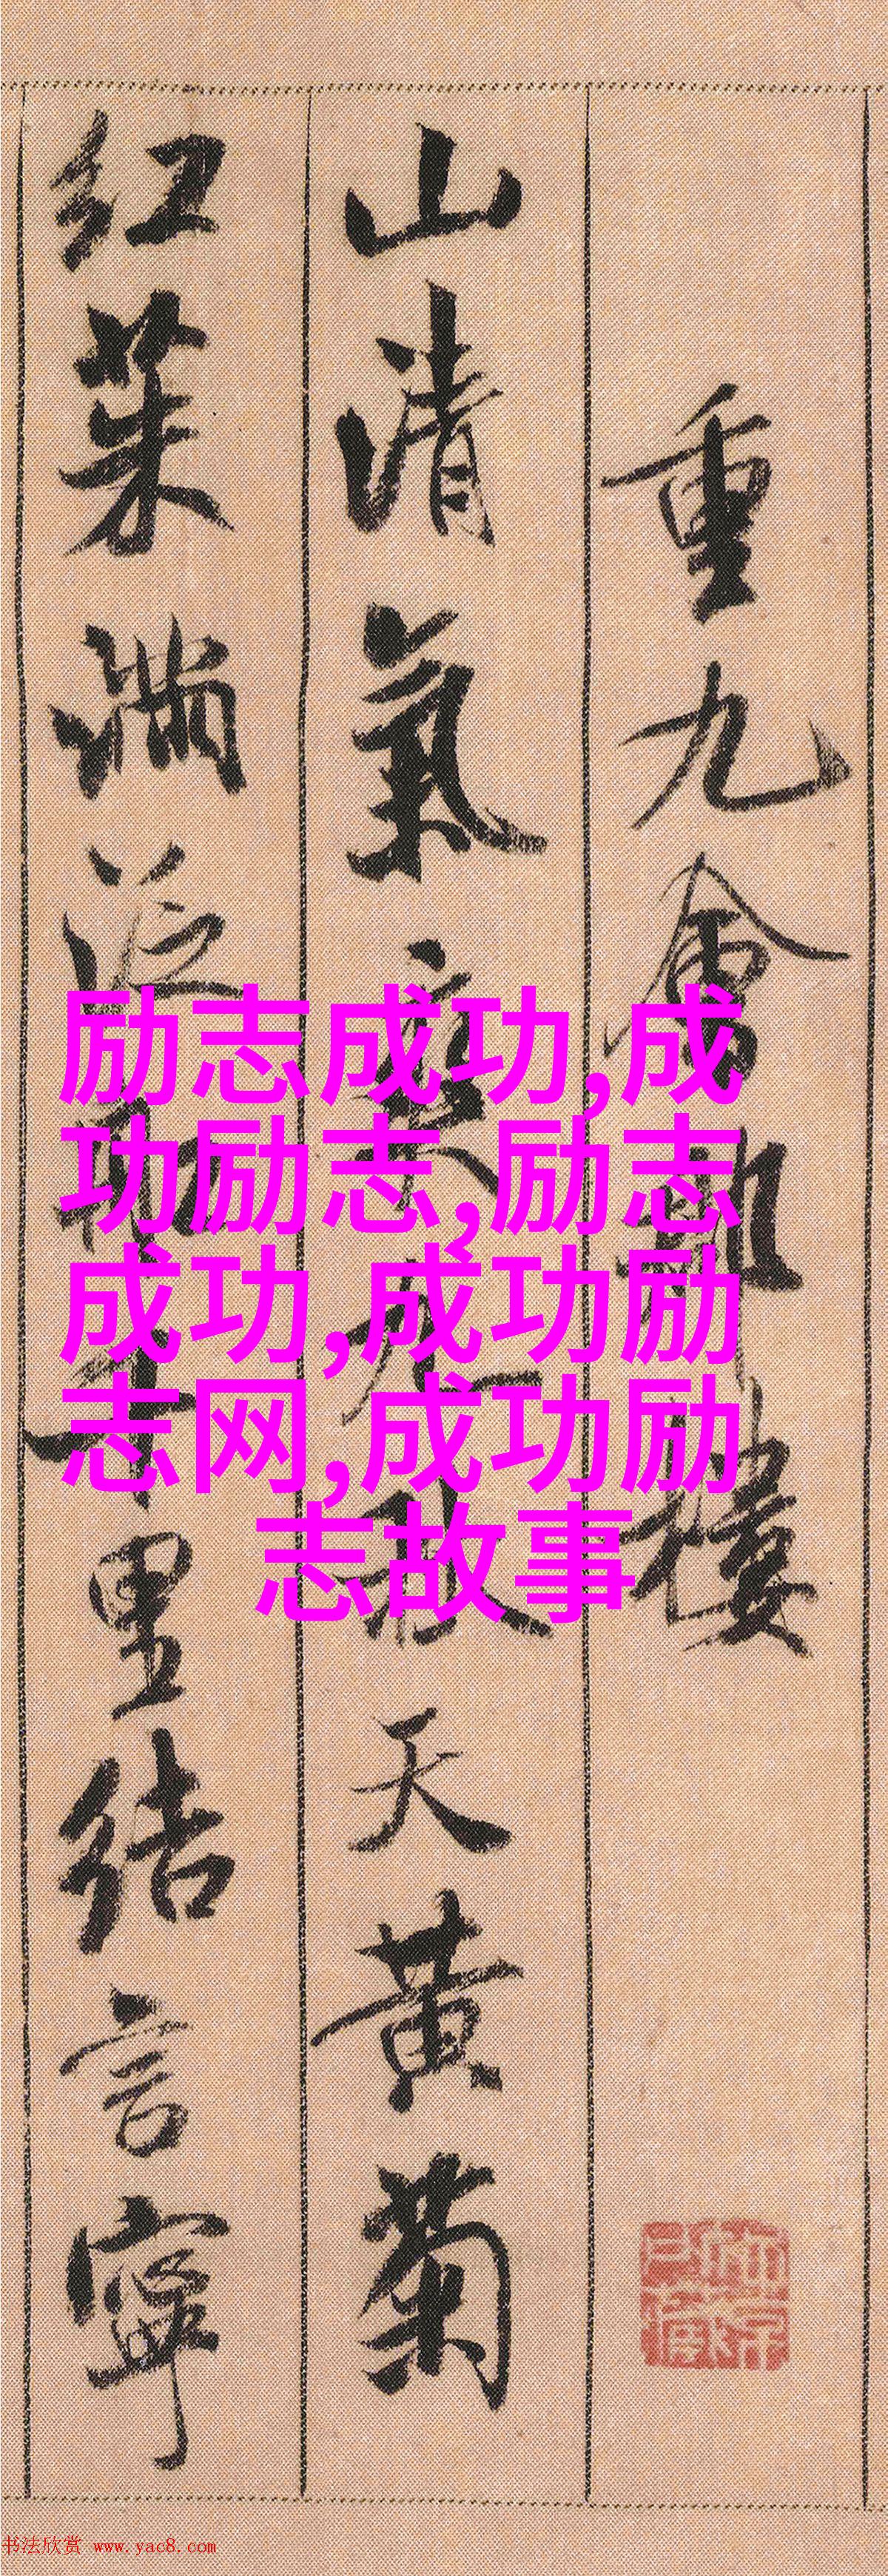 重九會郡樓
山清氣爽九秋天黃菊
紅茱滿泛船千里結言寧
励志成功,成
功励志,励志
成功,成功励
志网,成功励
志故事
书法欣赏 www.yac8.com